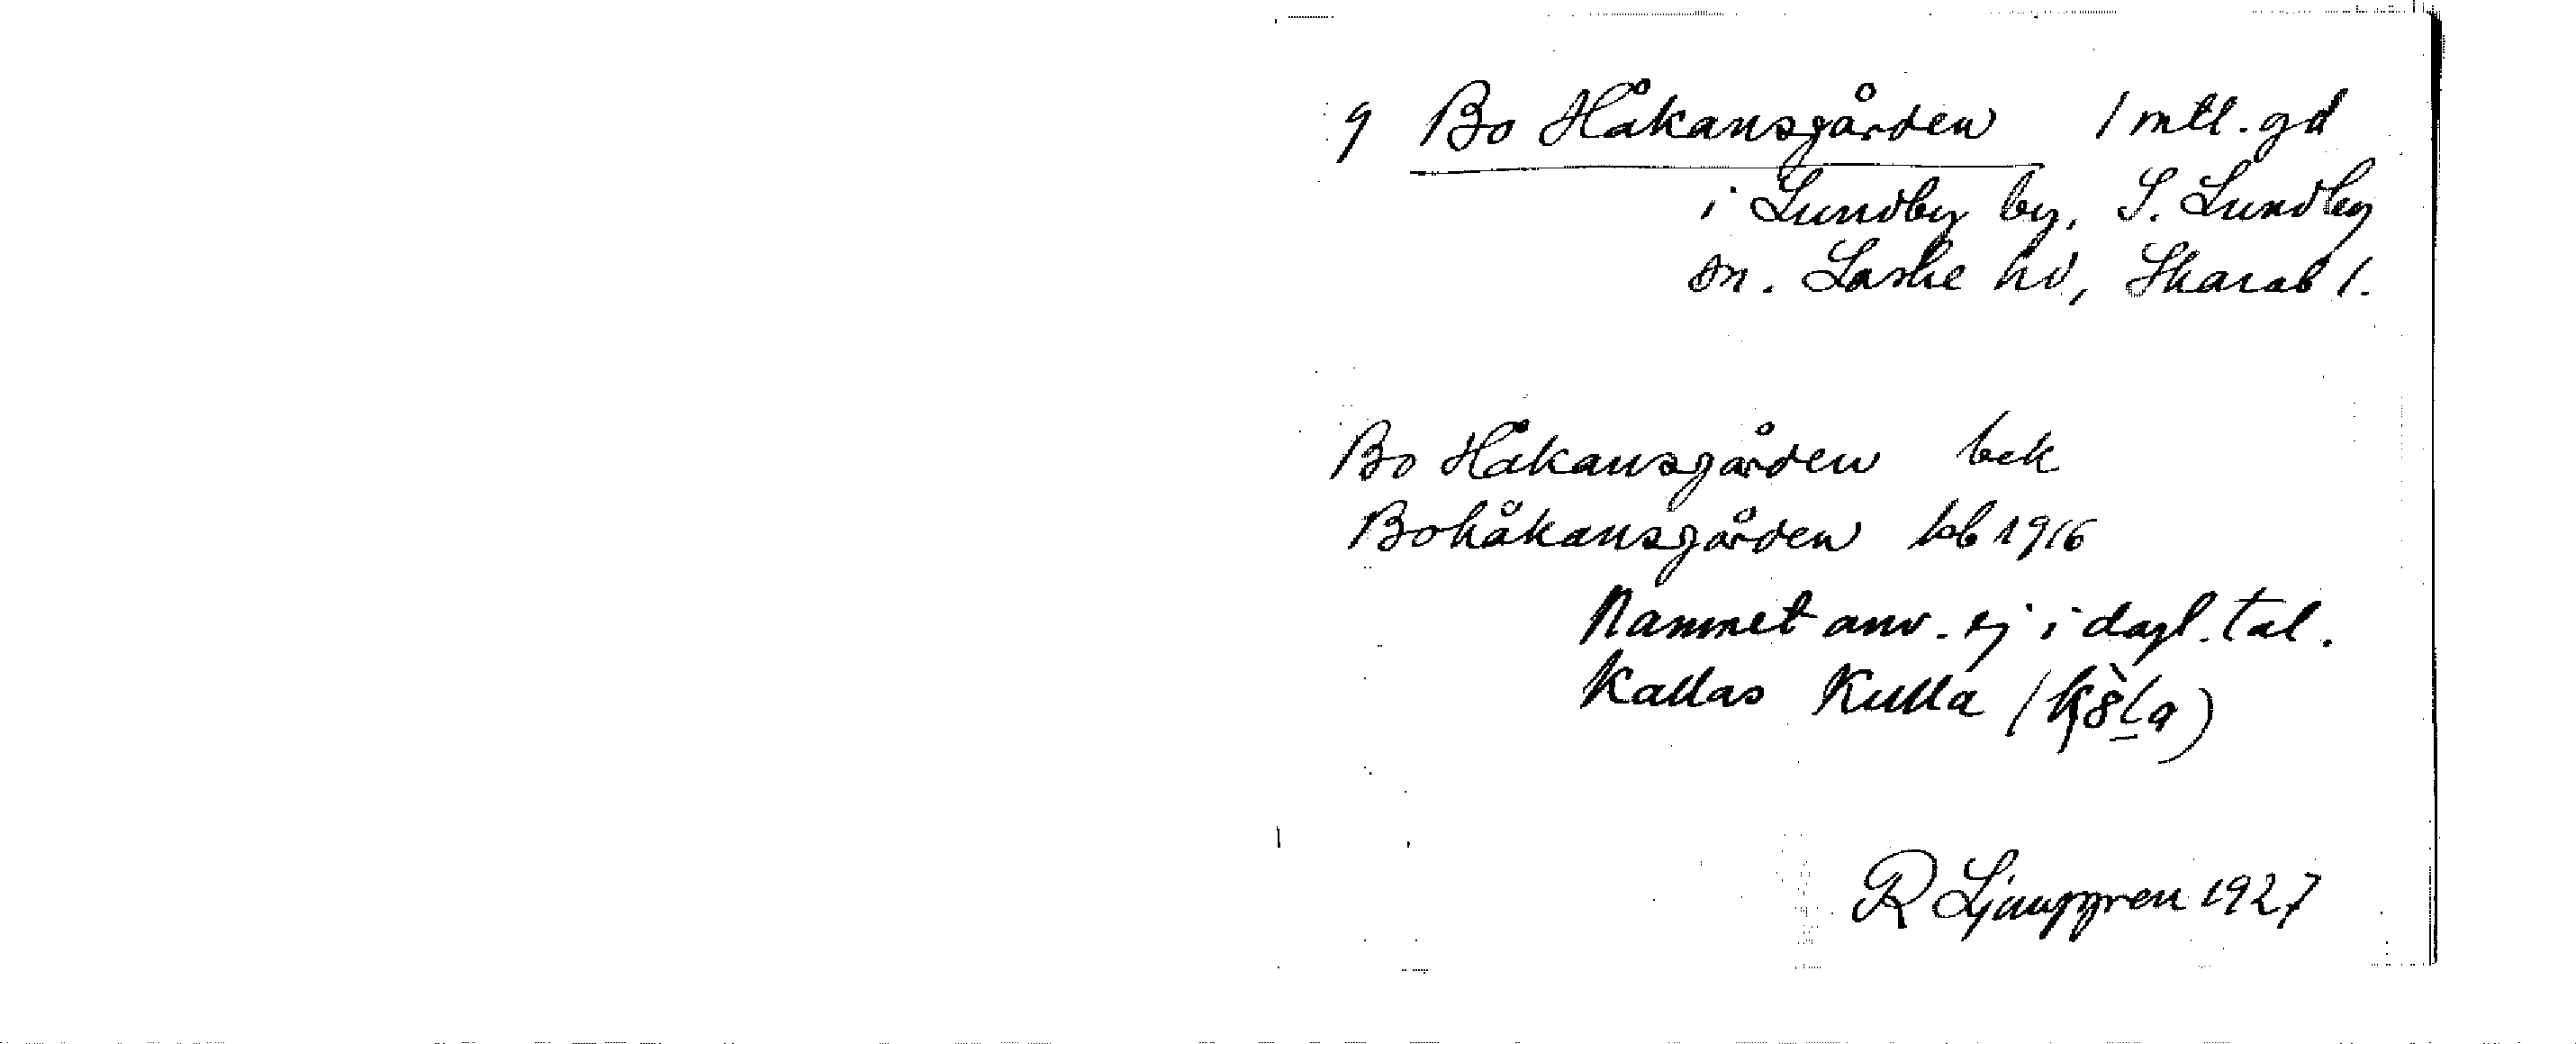 9 Bo Håkansgården 1 mtl. gd
i Lundby by, S. Lundby
sn. Laske hd, Skarab l.
Bo Håkansgården bek
Bohåkansgården kb 1916
Namnet anv. ej i dagl. tal.
Kallas Kulla
R Ljunggren 1927